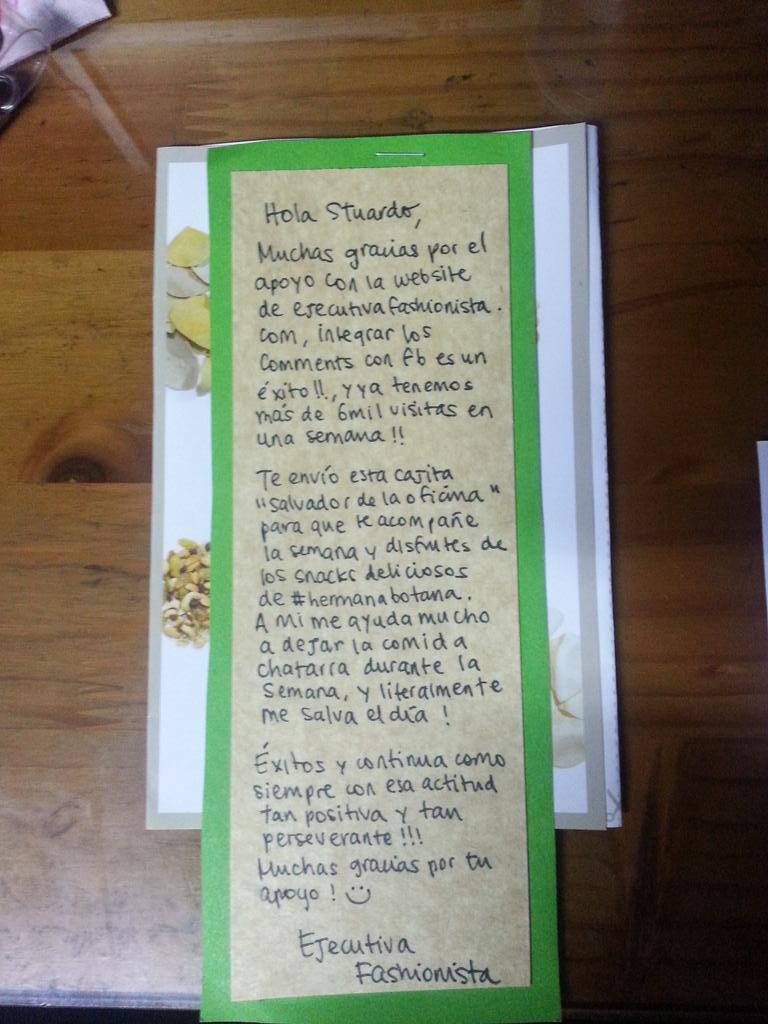 Hola Stuardo,
Muchas gracias por el
apoyo con la website
de ejecutivafashionista.
com, integrar los
comments con fb es un
éxito!!, y ya tenemos
más de 6mil visitas en
una semana!!
Te envío esta cajita
"salvador de la oficina"
para que te acompañe
la semana y disfrutes de
los snacks deliciosos
de #hermanabotana.
A mi me ayuda mucho
a dejar la comida
chatarra durante la
semana, y literalmente
me salva el día!
Éxitos y continua como
siempre con esa actitud
tan positiva y tan
perseverante!!!
Muchas gracias por tu
apoyo! :)
Ejecutiva
Fashionista